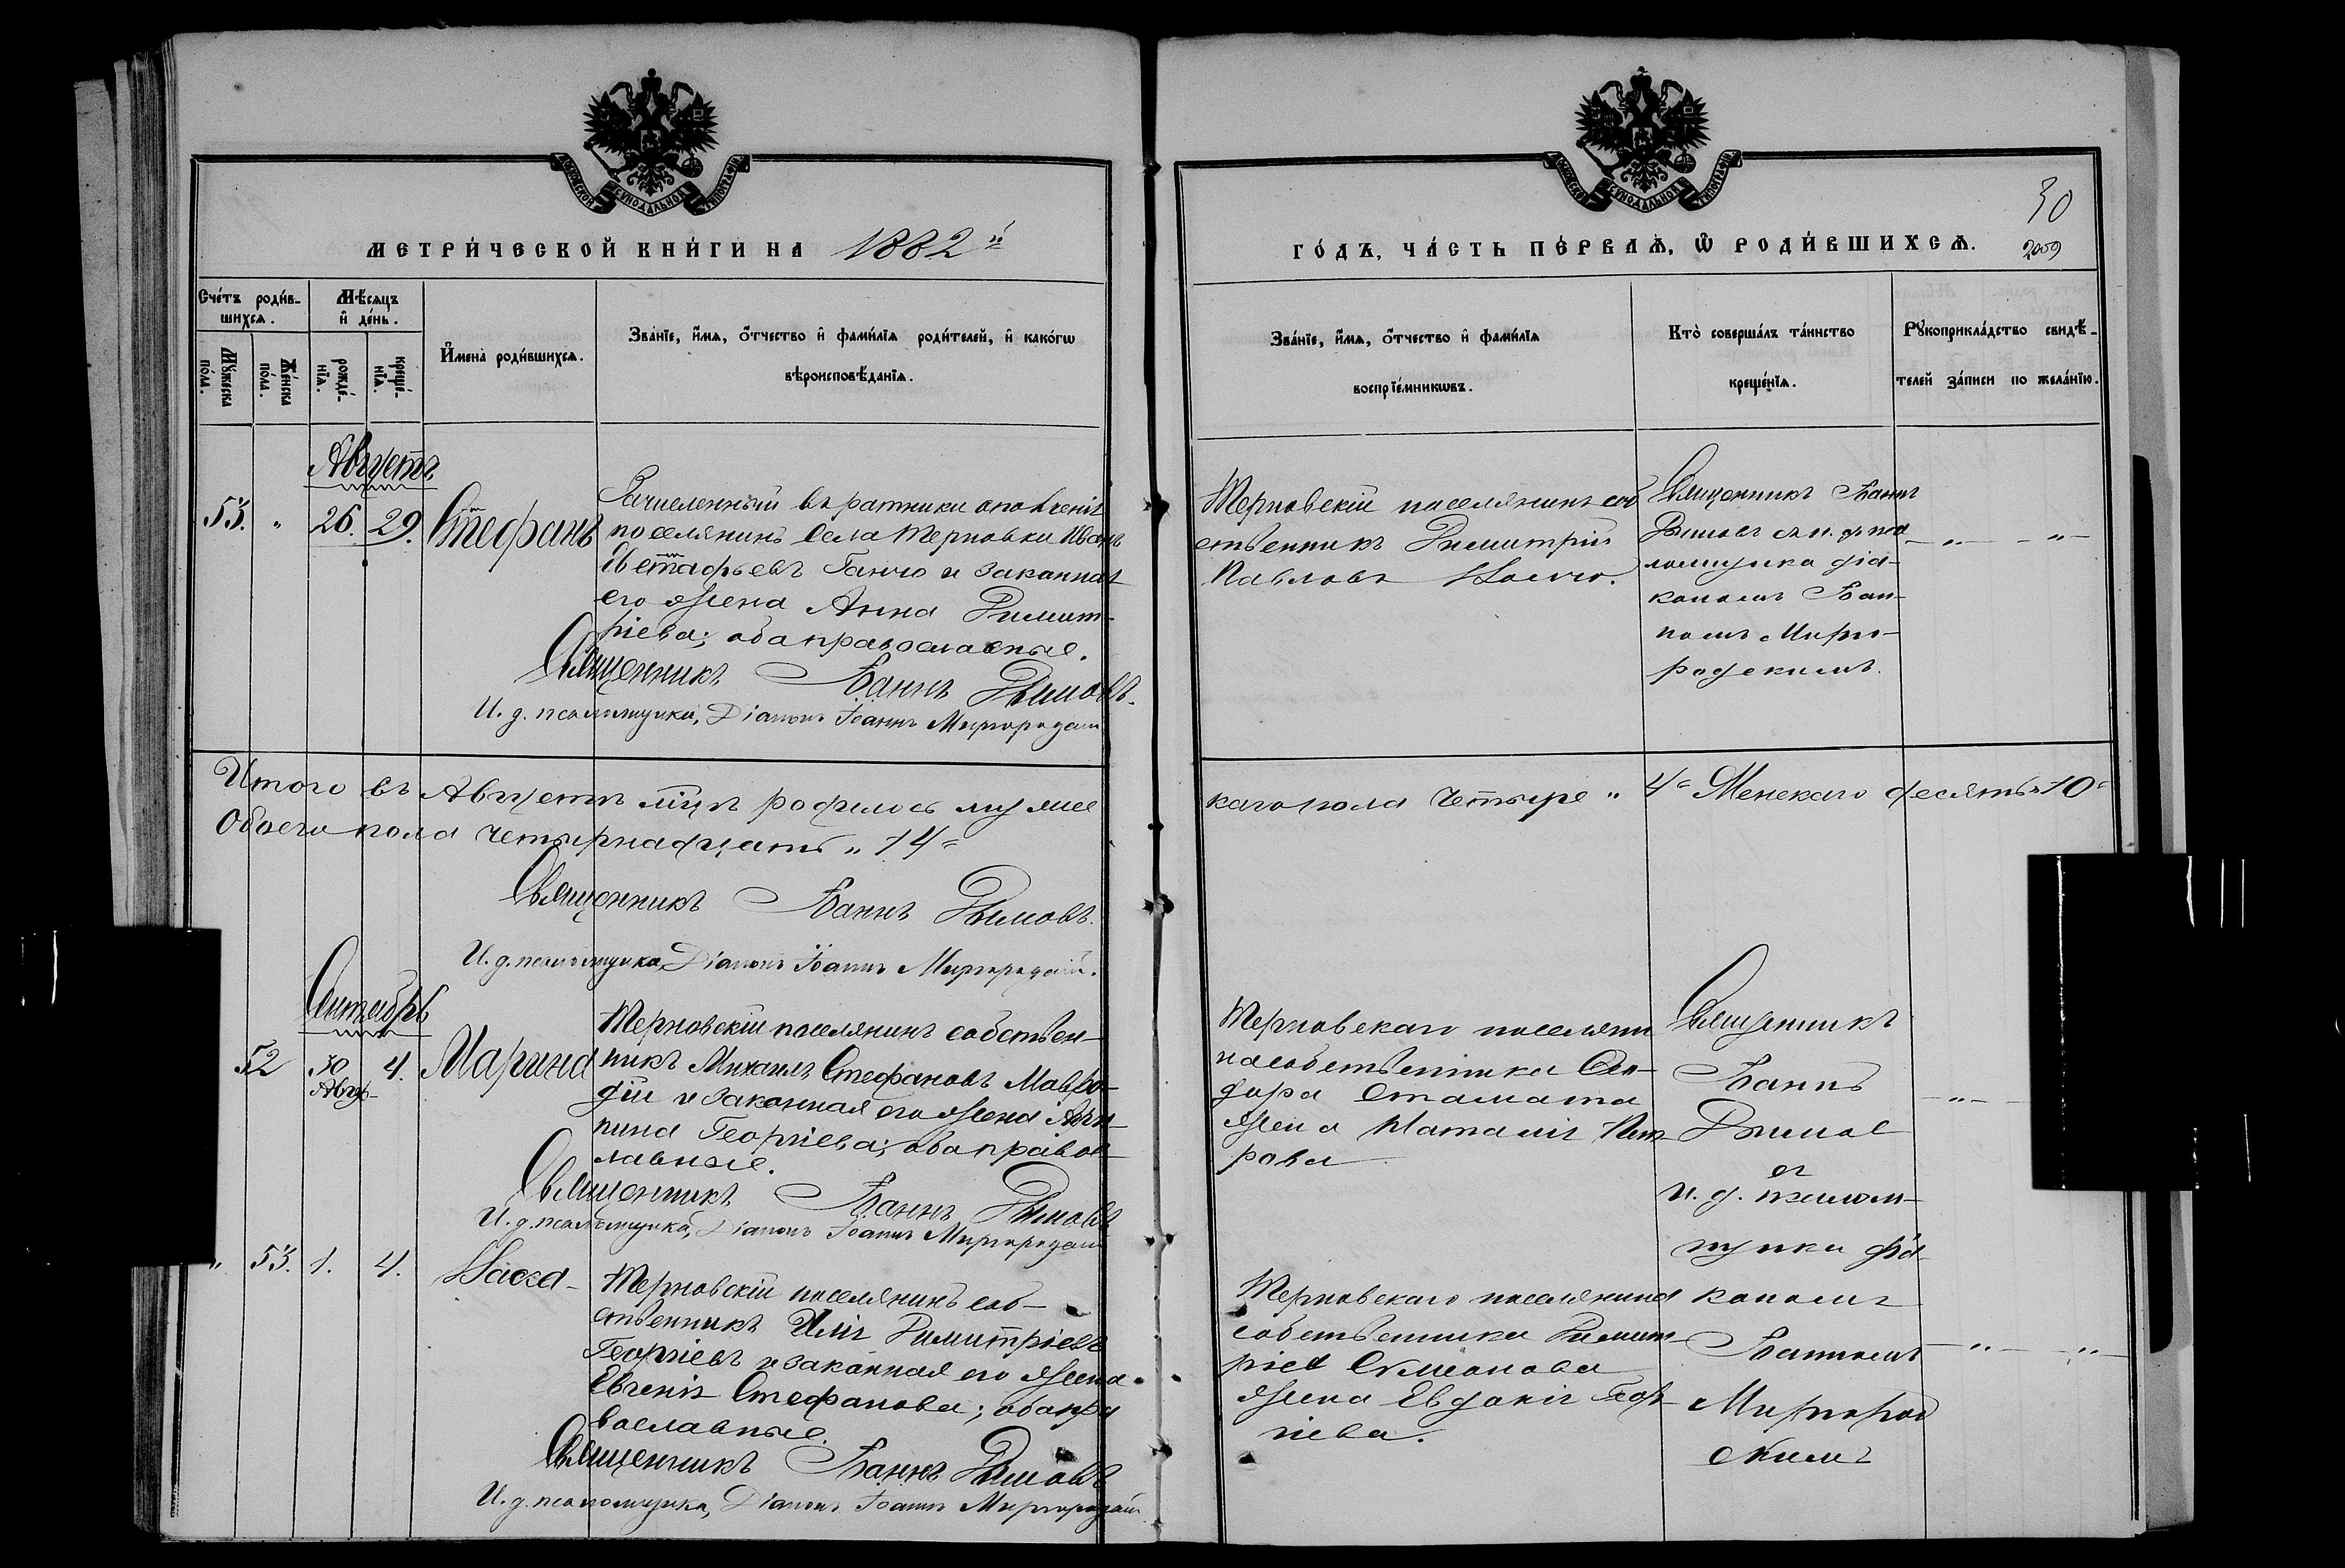 МОСКОВСКОЙ СУНОДАЛЬНОЙ ТИПОГРАФІИ
МЕТРИ́ЧЕСКОЙ КНИ́ГИ НА 1882 й
Сче́тъ роди́в-
шихсѧ.
Мѣ́сѧцъ
и҆ де́нь.
И҆мена̀ роди́вшихсѧ.
Зва́нїе, и҆́мѧ, ѻ҆́тчество и҆ фами́лїѧ роди́телей, и҆ како́гѡ
вѣроисповѣ́данїѧ.
Мꙋ́жеска
по́ла.
Же́нска
по́ла.
рожде́-
нїѧ.
креще́-
нїѧ.
Августъ
53. " 26. 29. Стефанъ
Зачисленный въ ратники ополченія
поселянинъ села Терновки Иванъ
Евстафьевъ Ганчо и законная
его жена Анна Димит-
ріева; оба православные.
Священникъ Іоаннъ Дымовъ.
И. д. псаломщика, Діаконъ Іоаннъ Миргородскій
Итого въ Августѣ мцѣ родилось мужес
Обоего пола четырнадцать „ 14 "
Священникъ Іоаннъ Дымовъ.
И. д. псаломщика, Діаконъ Іоаннъ Миргородскій.
Сентябрь
52 30 4. Марина
Авгус-
Терновскій поселянинъ собствен-
никъ Михаилъ Стефановъ Мавро-
дій и законная его жена
Георгіева; оба правос
лавные.
Священникъ Іоаннъ Дымовъ
И. д. псаломщика, Діаконъ Іоаннъ Миргородскій
" 53. 1. 4.
Терновскій поселянинъ соб-
ственникъ Илія Димитріевъ
Георгіевъ и законная его жена
Евгенія Стефанова; оба пра
вославные.
Священникъ Іоаннъ Дымовъ
И. д. псаломщика, Діаконъ Іоаннъ Миргородскій
МОСКОВСКОЙ СУНОДАЛЬНОЙ ТИПОГРАФІИ
30
2009
ГО́ДЪ, ЧА́СТЬ ПЕ́РВАѦ, Ѡ҆ РОДИ́ВШИХСѦ.
Зва́нїе, и҆́мѧ, ѻ҆́тчество и҆ фами́лїѧ
воспрїе́мникѡвъ.
Кто̀ соверша́лъ та́инство
креще́нїѧ.
Рꙋкоприкла́дство свидѣ́-
телей за́писи по жела́нїю.
Терновскій поселянинъ соб
ственникъ Димитрій
Павловъ
Священникъ Іоаннъ
Дымовъ съ и. д. пса
ломщика діа-
кономъ Іоан-
номъ Мирго-
родскимъ.
каго пола четыре „ 4 " Женскаго десять „ 10 "
Терновскаго поселяни
на собственника Ѳео-
дора Стамата
жена Наталія Пет
рова
Священникъ
Іоаннъ
Дымов
съ
и. д. псалом-
щика діа-
кономъ
Іоанномъ
Миргород
скимъ
Терновскаго поселянина
собственника Димит
рія Симонова
жена Евдокія Геор
гіева.